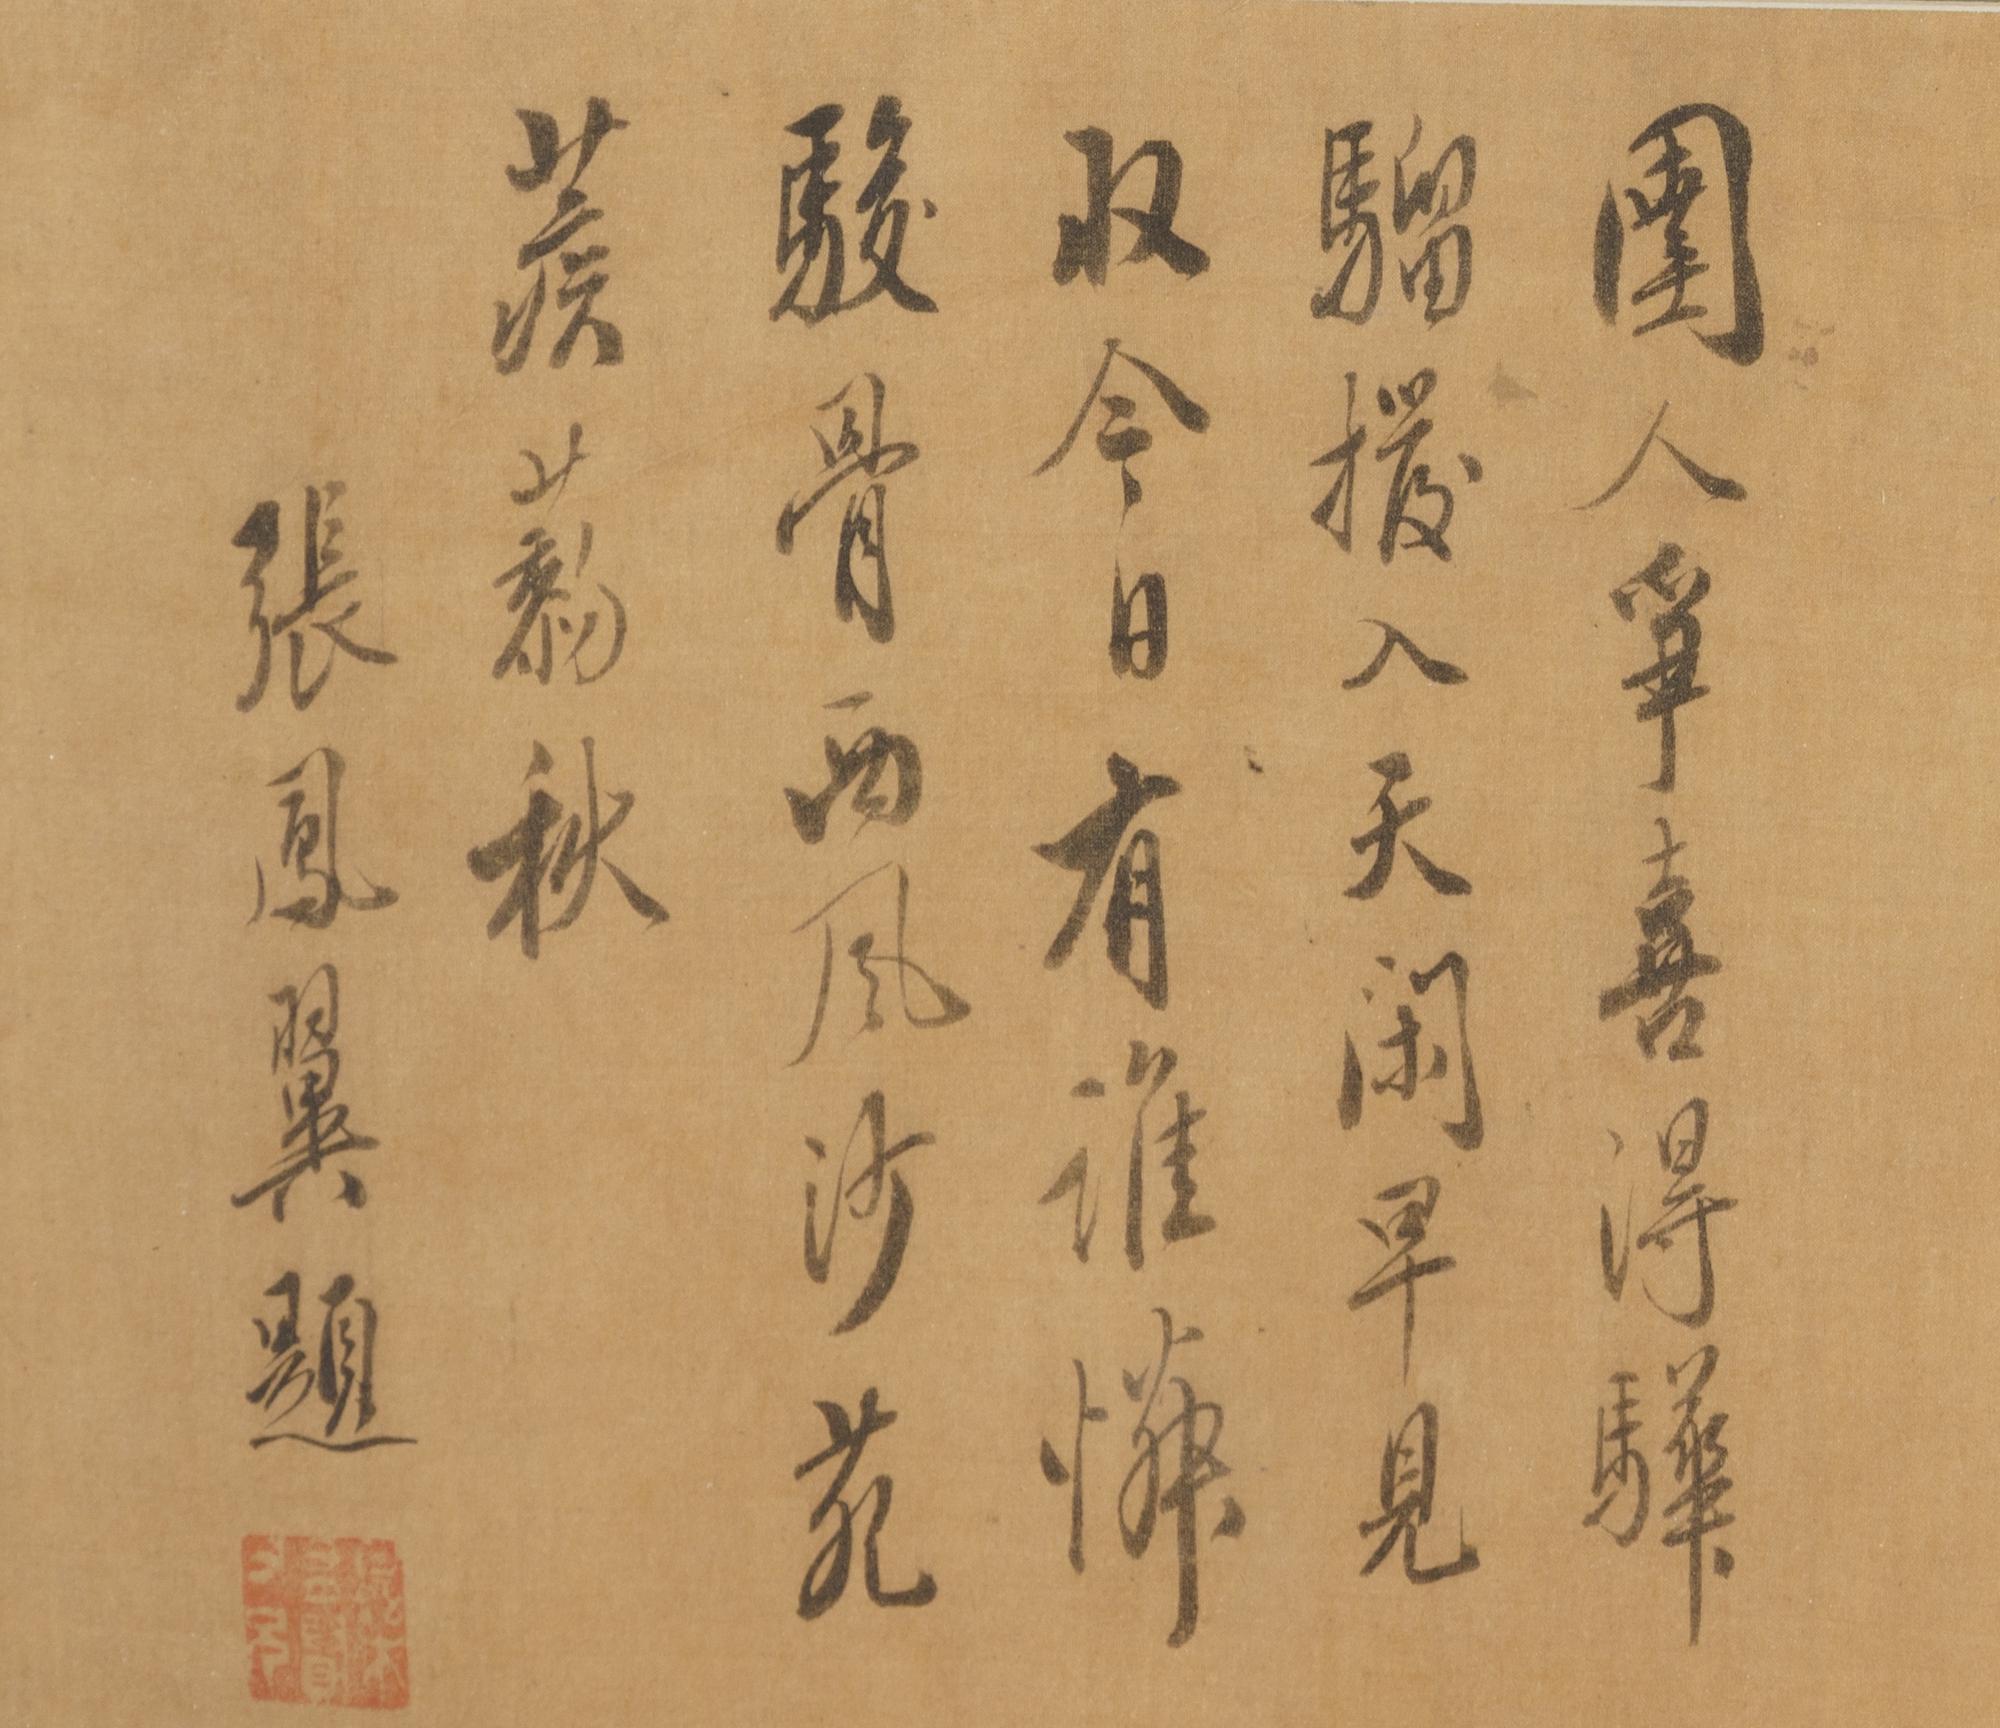 圉人爭喜得驊
騮撥入天閑早見
收今日有誰憐
駿骨西風沙苑
蒺藜秋
張鳳翼題